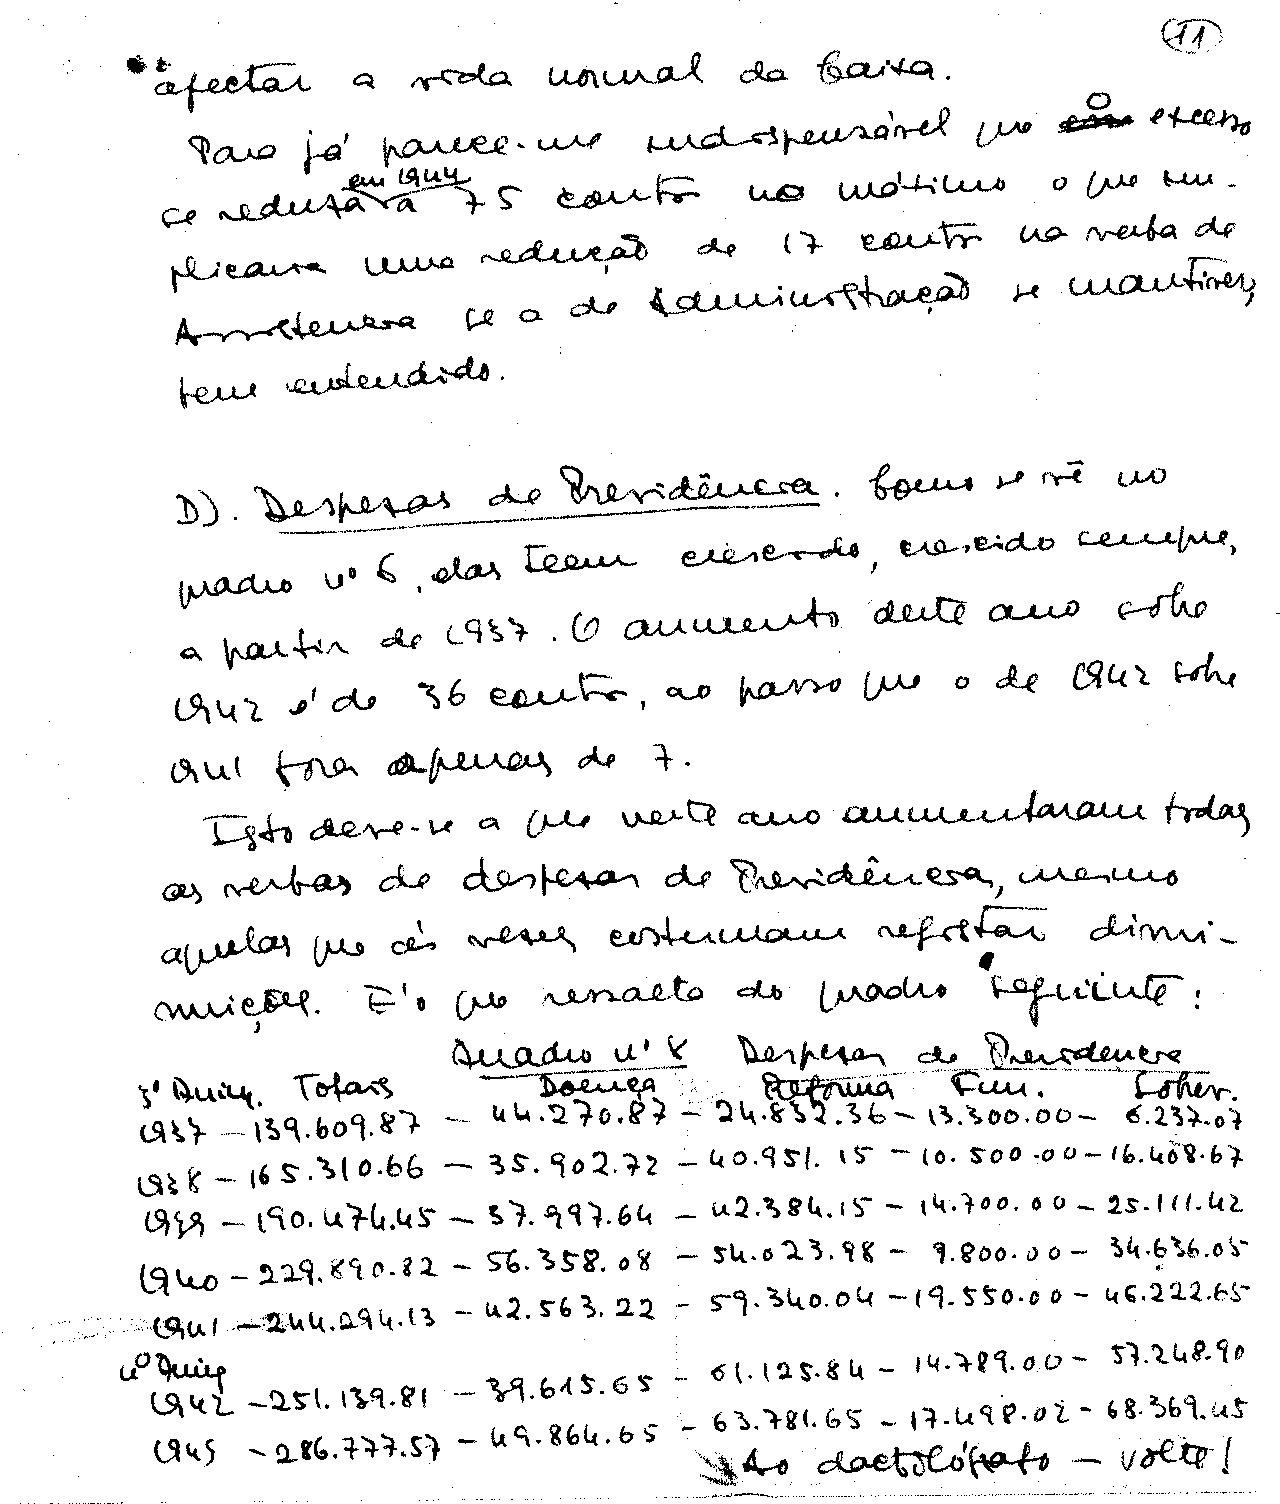 11
afectar a vida normal da Caixa.
Para já parece-me indispensável que o excesso
se reduza em 1944 a 75 contos no máximo o que im-
plicaria uma redução de 17 contos na verba de
Assistencia se a de Administração se mantiver,
bem entendido.
D). Despesas de Previdência. Como se vê no
quadro nº 6, elas teem crescido, crescido sempre,
a partir de 1937. O aumento deste ano sôbre
1942 é de 36 contos, ao passo que o de 1942 sobre
1941 fora apenas de 7.
Isto deve-se a que neste ano aumentaram todas
as verbas de despesas de Previdência, mesmo
aquelas que ás vezes costumam registar dimi-
nuições. E' o que ressalta do quadro seguinte:
Quadro nº 8 Despesas de Previdencia
3º Quinq. Totais Doença Reforma Fun. Sobrev.
1937 - 139.609.87 - 44.270.87 - 24.832.36 - 13.300.00 - 6.237.07
1938 - 165.310.66 - 35.902.72 - 40.951.15 - 10.500.00 - 16.408.67
1939 - 190.474.45 - 37.997.64 - 42.384.15 - 14.700.00 - 25.111.42
1940 - 229.890.82 - 56.358.08 - 54.023.98 - 9.800.00 - 34.636.05
1941 - 244.294.13 - 42.563.22 - 59.340.04 - 19.550.00 - 46.222.65
4º Quinq
1942 - 251.139.81 - 39.615.65 - 61.125.84 - 14.789.00 - 57.248.90
1943 - 286.777.57 - 49.864.65 - 63.781.65 - 17.498.02 - 68.369.45
Ao dactilógrafo - volte!